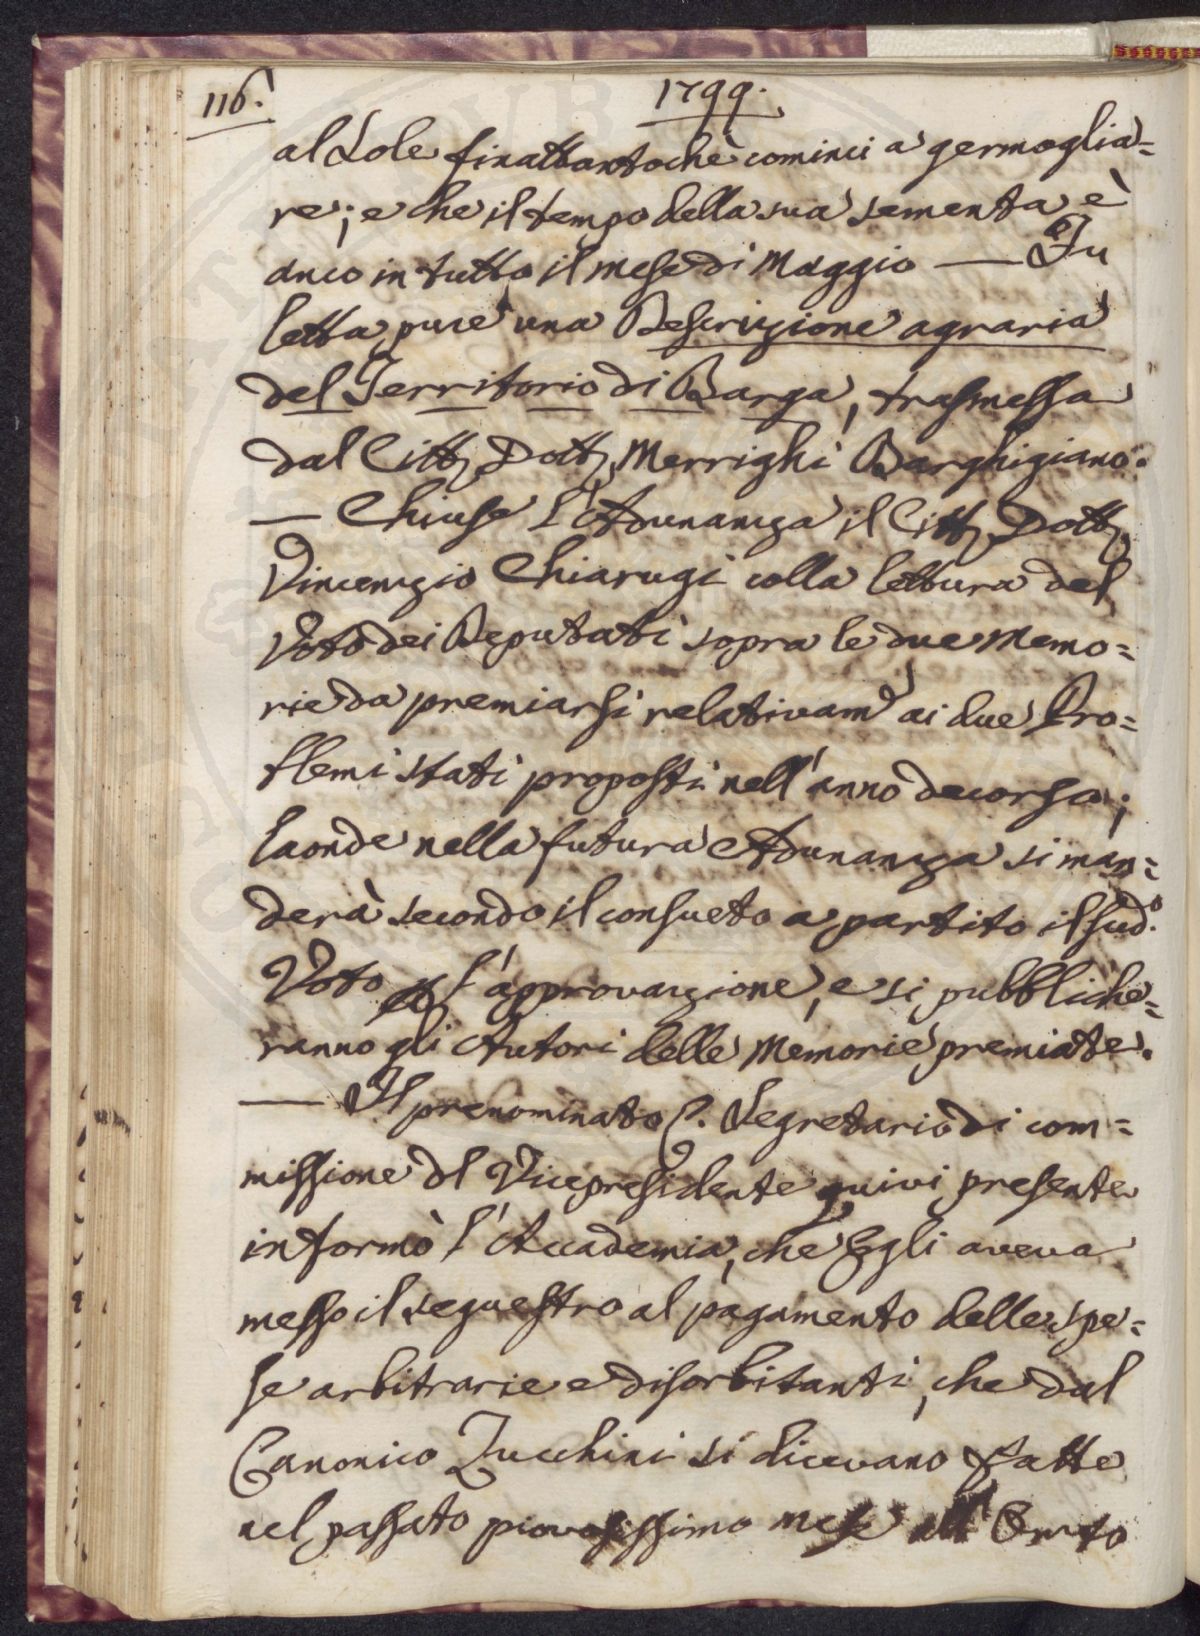 116.
1799.
al Sole finattantochè cominci a germoglia=
re; e che il tempo della sua sementa è
anco in tutto il mese di Maggio — Fu
letta pure una Descrizione agraria
del Territorio di Barga, trasmessa
dal Citt. Dott. Merrighi Barghigiano.
— Chiuse l'Adunanza il Citt. Dott.
Vincenzio Chiarugi colla lettura del
Voto dei Deputati sopra le due Memo=
rie da premiarsi relativam.e ai due Pro=
blemi stati proposti nell'anno decorso;
laonde nella futura Adunanza si man=
derà secondo il consueto a partito il sud.o
Voto p l'approvazione, e si pubbliche=
ranno gli Autori delle Memorie premiate.
— Il prenominato C. Segretario di com=
missione dl Vicepresidente quivi presente
informò l'Accademia, che Egli aveva
messo il sequestro al pagamento delle spe=
se arbitrarie e disorbitanti, che dal
Canonico Zucchini si dicevano fatte
nel passato piovosissimo mese all'Orto